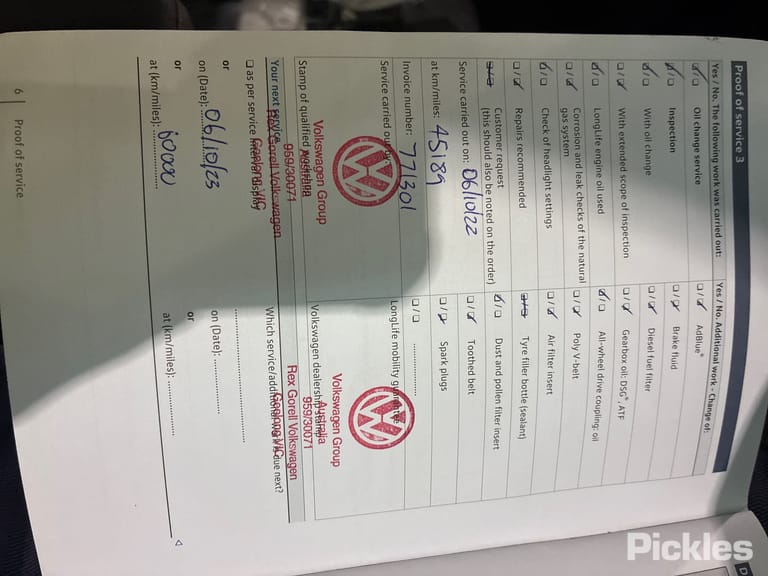 Proof of service 3
Yes / No. The following work was carried out:
Oil change service
Inspection
With oil change
With extended scope of inspection
LongLife engine oil used
Corrosion and leak checks of the natural
gas system
Check of headlight settings
Repairs recommended
Customer request
(this should also be noted on the order)
Service carried out on: 06/10/22
at km/miles: 45189
Invoice number: 771301
Service carried out by:
Volkswagen Group
Australia
959/30071
Rex Gorell Volkswagen
Geelong VIC
Stamp of qualified
Your next service
as per service interval display
or
on (Date): 06/10/23
or
at (km/miles): 60000
6 Proof of service
Yes / No. Additional work - Change of:
AdBlue®
Brake fluid
Diesel fuel filter
Gearbox oil: DSG®, ATF
All-wheel drive coupling: oil
Poly V-belt
Air filter insert
Tyre filler bottle (sealant)
Dust and pollen filter insert
Toothed belt
Spark plugs
LongLife mobility guarantee
Volkswagen Group
Australia
959/30071
Rex Gorell Volkswagen
Geelong VIC
Volkswagen dealership stamp
Which service/additional work is due next?
on (Date):
or
at (km/miles):
D
Pickles